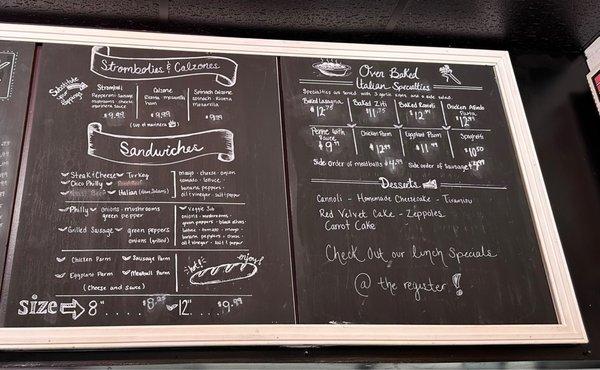 Strombolies & Calzones
Substitute any toppings
Stromboli
Pepperoni-Sausage
mushrooms-cheese
marinara sauce
$9.99
Calzone
Ricotta mozzarella
ham
$9.99
Spinach Calzone
Spinach Ricotta
Mozzarella
$9.99
(cup of marinera)
Sandwiches
Steak & Cheese Turkey
Chico Philly
Italian
mayo - cheese - onions
tomato - lettuce -
banana peppers -
oil & vinegar - salt & pepper
Philly onions - mushrooms
green pepper
Grilled Sausage green peppers
onions (grilled)
Veggie Sub
onions - mushrooms -
green peppers - black olives
lettuce - tomato - mayo -
banana peppers - cheese -
oil & vinegar - salt & pepper
Chicken Parm Sausage Parm
Eggplant Parm Meatball Parm
(cheese and sauce)
hot!
enjoy!
Size 8" ..... $8.25 12" ..... $9.99
Oven Baked
Italian Specialties
Specialties are served with 3 garlic knots and a side salad.
Baked Lasagna $12.75
Baked Ziti $11.75
Baked Ravioli $12
Chicken Alfredo
Pasta
Penne with
Sauce
$9.99
Chicken Parm
Eggplant Parm
Spaghetti
$10.50
Side order of meatballs
Side order of sausage
Desserts
Cannoli - Homemade Cheesecake - Tiramisu
Red Velvet Cake - Zeppoles
Carrot Cake
Check out our lunch Specials
@ the register!